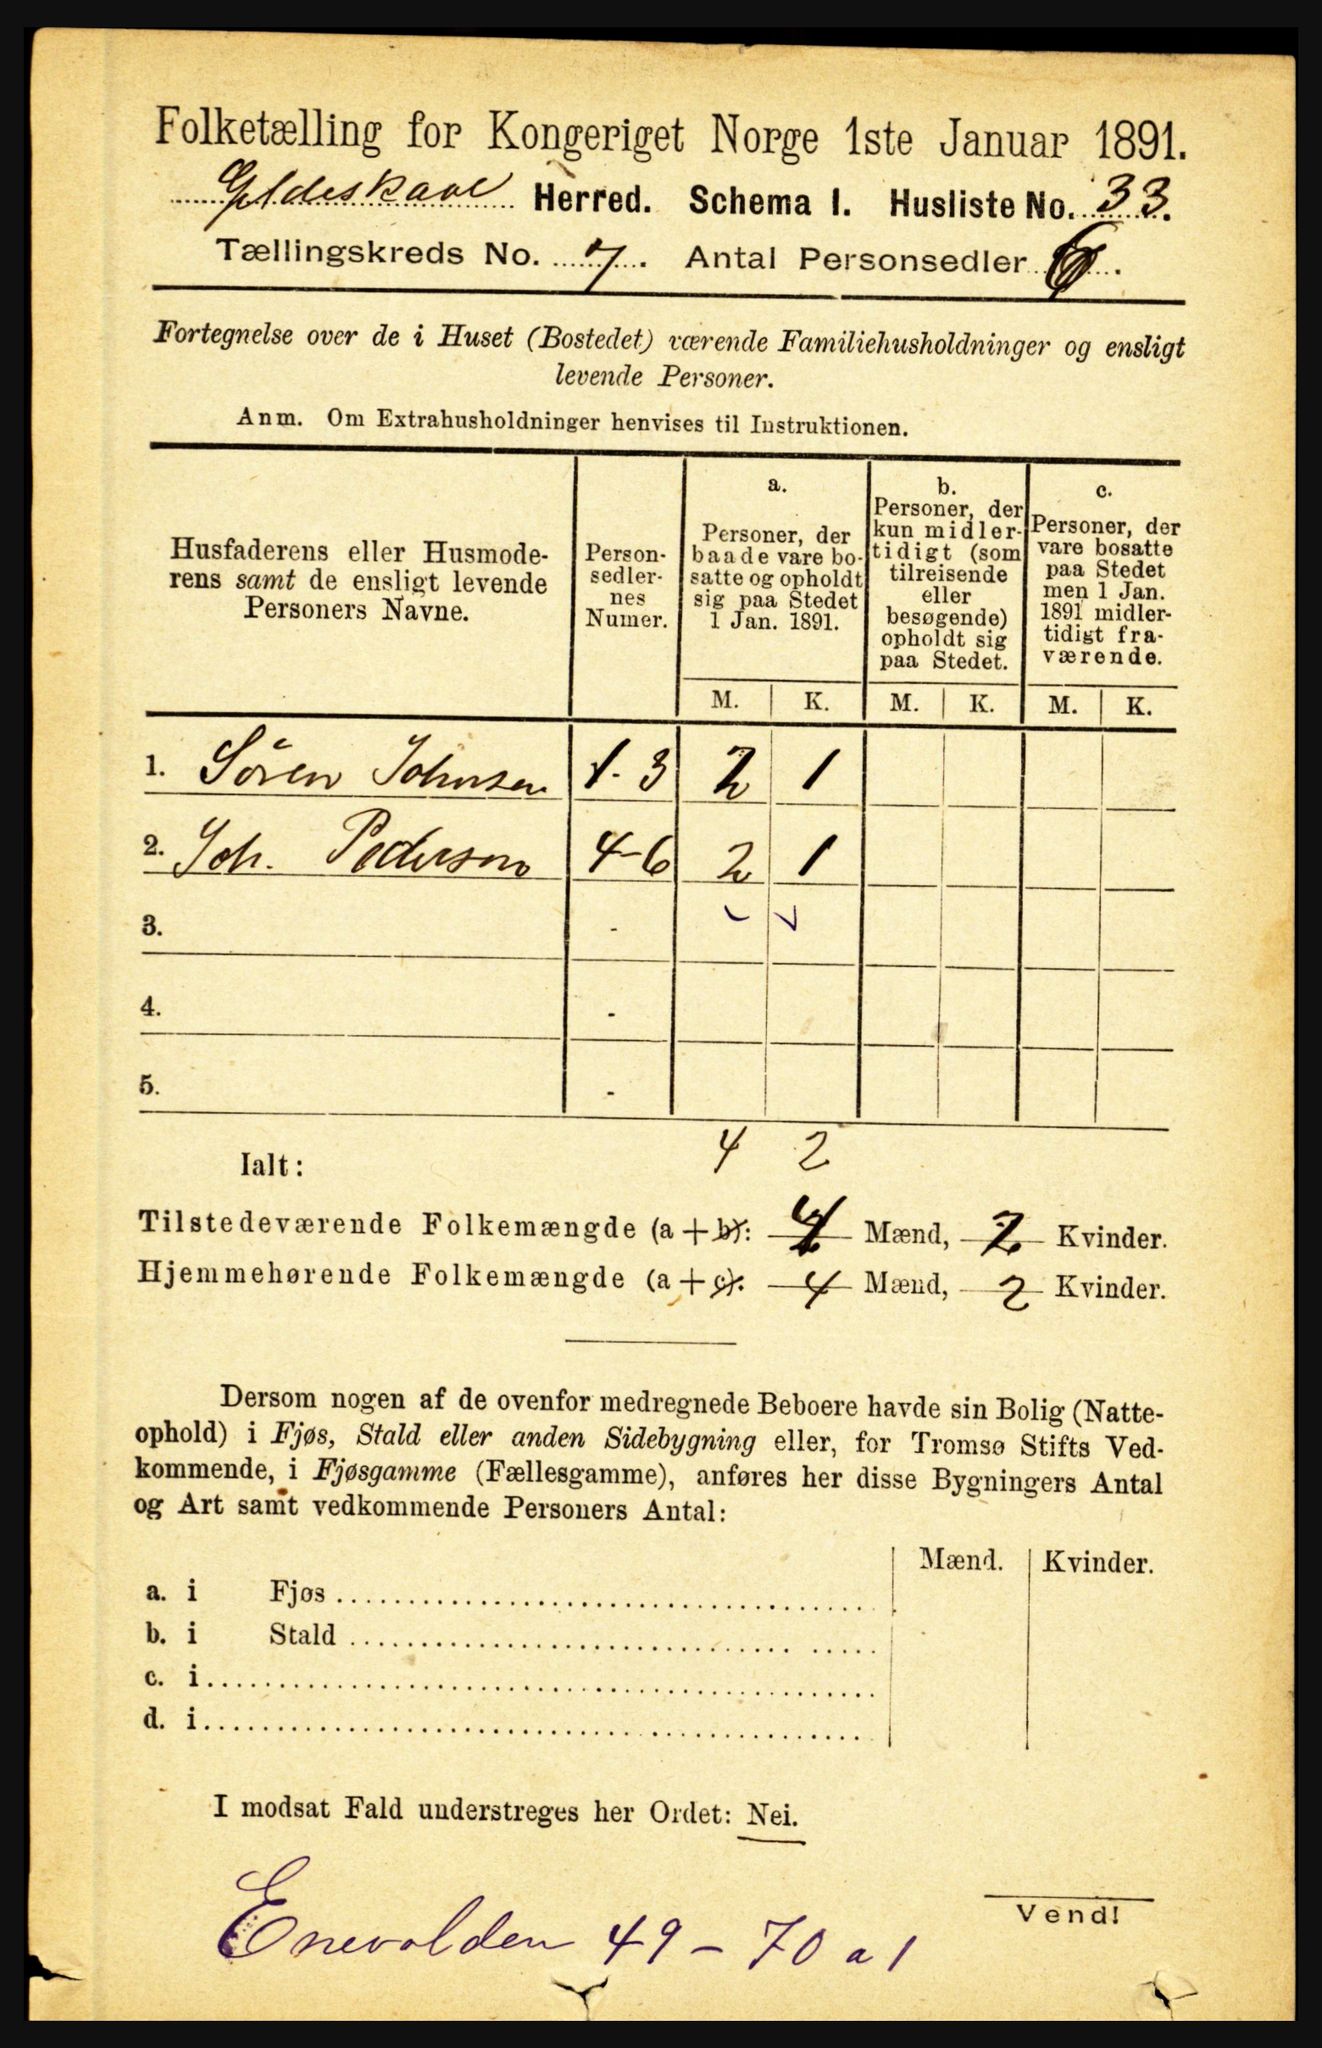 Folketælling for Kongeriget Norge 1ste Januar 1891.
Gildeskaal Herred. Schema 1. Husliste No. 33.
Tællingskreds No. 7. Antal Personsedler 6.
Fortegnelse over de i Huset (Bostedet) værende Familiehusholdninger og ensligt
levende Personer.
Anm. Om Extrahusholdninger henvises til Instruktionen.
Husfaderens eller Husmode-
rens samt de ensligt levende
Personers Navne.
Person-
sedler-
nes
Numer.
a.
Personer, der
baade vare bo-
satte og opholdt
sig paa Stedet
1 Jan. 1891.
b.
Personer, der
kun midler-
tidigt (som
tilreisende
eller
besøgende)
opholdt sig
paa Stedet.
c.
Personer, der
vare bosatte
paa Stedet
men 1 Jan.
1891 midler-
tidigt fra-
værende.
M. K. M. K. M. K.
1. Sören Johnsen 1-3 2 1
2. Joh. Pedersen 4-6 2 1
3. -
4. -
5. -
4 2
Ialt:
Tilstedeværende Folkemængde (a + b): 4 Mænd, 2 Kvinder.
Hjemmehørende Folkemængde (a + c): 4 Mænd, 2 Kvinder.
Dersom nogen af de ovenfor medregnede Beboere havde sin Bolig (Natte-
ophold) i Fjøs, Stald eller anden Sidebygning eller, for Tromsø Stifts Ved-
kommende, i Fjøsgamme (Fællesgamme), anføres her disse Bygningers Antal
og Art samt vedkommende Personers Antal:
Mænd. Kvinder.
a. i Fjøs
b. i Stald
c. i
d. i
I modsat Fald understreges her Ordet: Nei.
Vend!
Enevolden 49 - 70 a 1